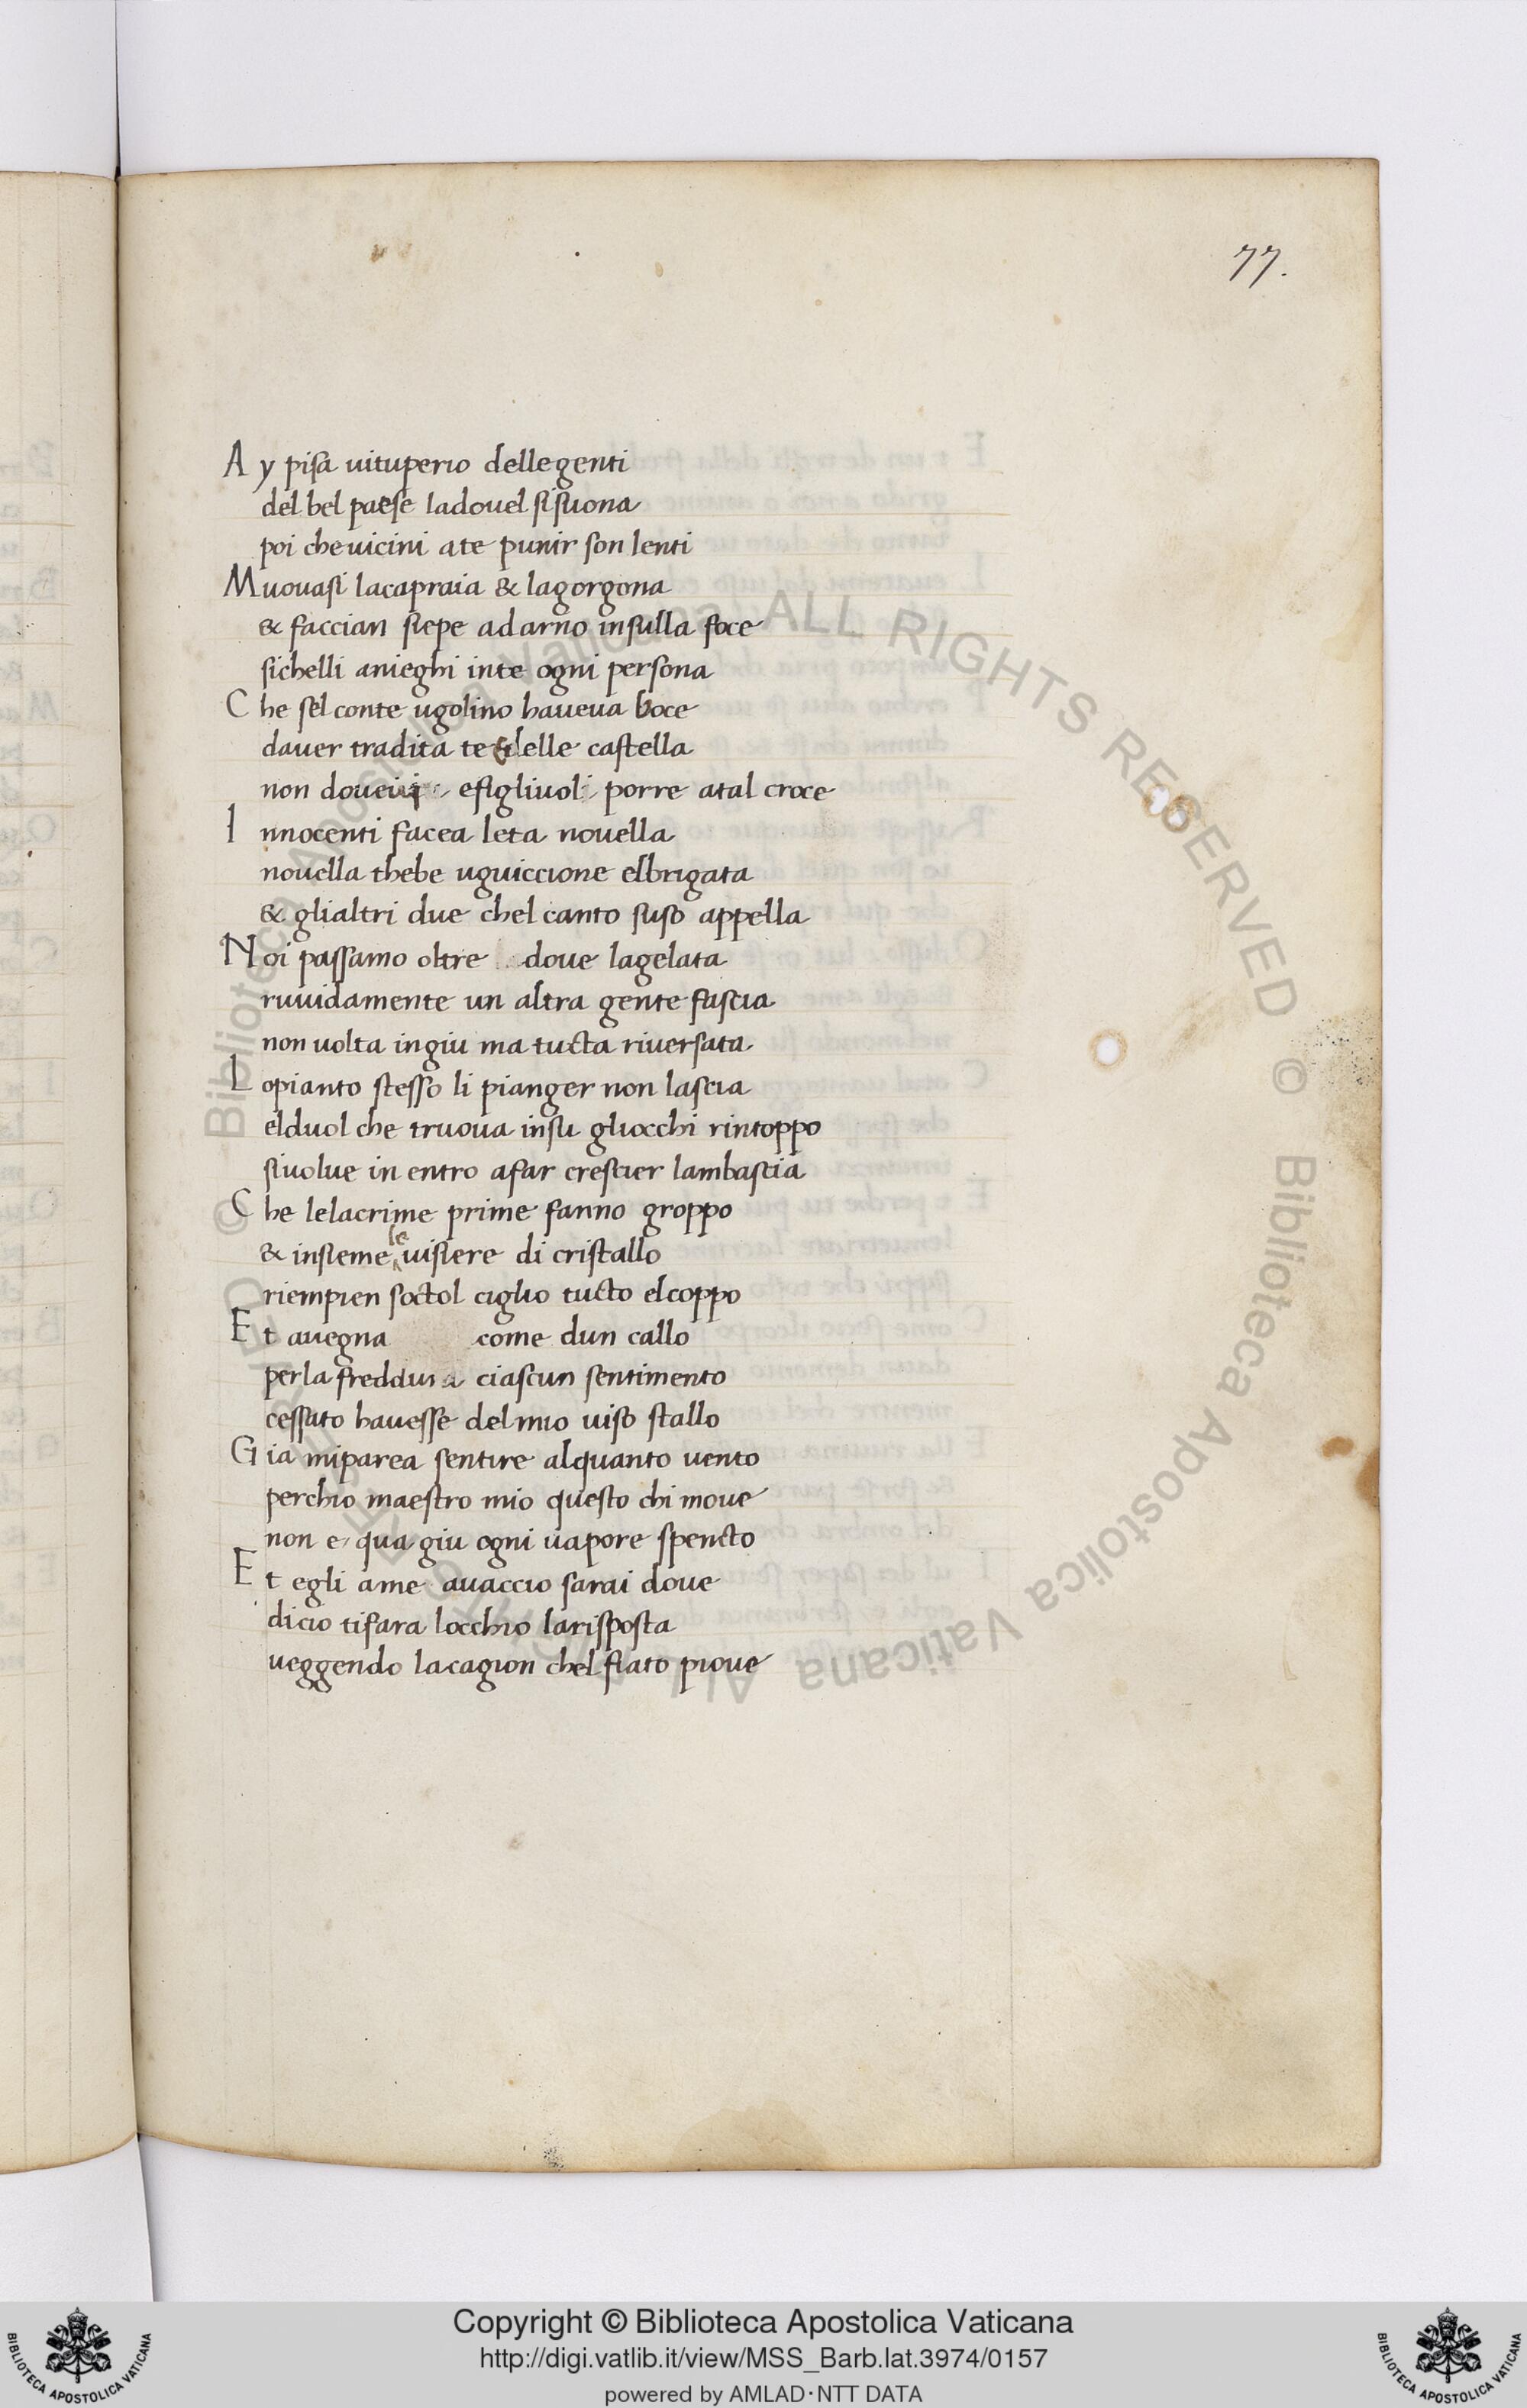 77.
Ay pisa uituperio dellegenti
del bel paese ladouel sisuona
poi cheuicini ate punir son lenti
Muouasi lacapraia & lagorgona
& faccian siepe adarno insulla foce
sichelli anieghi inte ogni persona
Che sel conte ugolino haueua boce
dauer tradita te delle castella
non doueui efigliuoli porre atal croce
Innocenti facea leta nouella
nouella thebe uguiccione elbrigata
& glialtri due chel canto suso appella
Noi passamo oltre doue lagelata
ruuidamente un altra gente fascia
non uolta ingiu ma tucta riuersata
Lopianto stesso li pianger non lascia
elduol che truoua insu gliocchi rintoppo
siuolue in entro afar crescier lambascia
Che lelacrime prime fanno groppo
& insieme le uisiere di cristallo
riempien soctol ciglio tucto elcoppo
Et auegna come dun callo
perla freddura ciascun sentimento
cessato hauesse delmio uiso stallo
Gia miparea sentire alquanto uento
perchio maestro mio questo chi moue
non e qua giu ogni uapore spencto
Et egli ame auaccio sarai doue
dicio tifara locchio larisposta
ueggendo lacagion chel fiato pioue
© Biblioteca Apostolica Vaticana ALL RIGHTS RESERVED © Biblioteca Apostolica Vaticana ALL RIGHTS RESERVED
Copyright © Biblioteca Apostolica Vaticana
http://digi.vatlib.it/view/MSS_Barb.lat.3974/0157
powered by AMLAD·NTT DATA
BIBLIOTECA APOSTOLICA VATICANA
BIBLIOTECA APOSTOLICA VATICANA